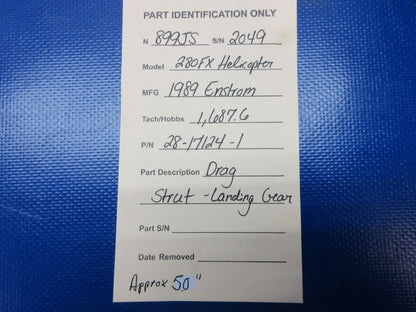 PART IDENTIFICATION ONLY
N 899JS S/N 2049
Model 280FX Helicopter
MFG 1989 Enstrom
Tach/Hobbs 1,687.6
P/N 28-17124-1
Part Description Drag
Strut - Landing Gear
Part S/N
Date Removed
Approx 50"